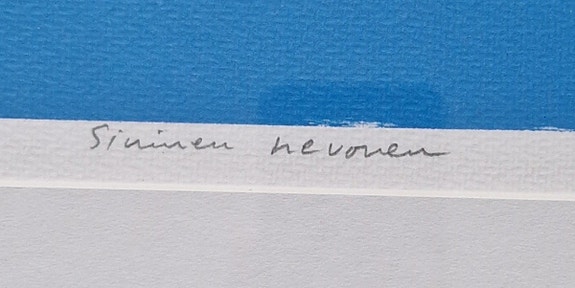 Sininen hevonen